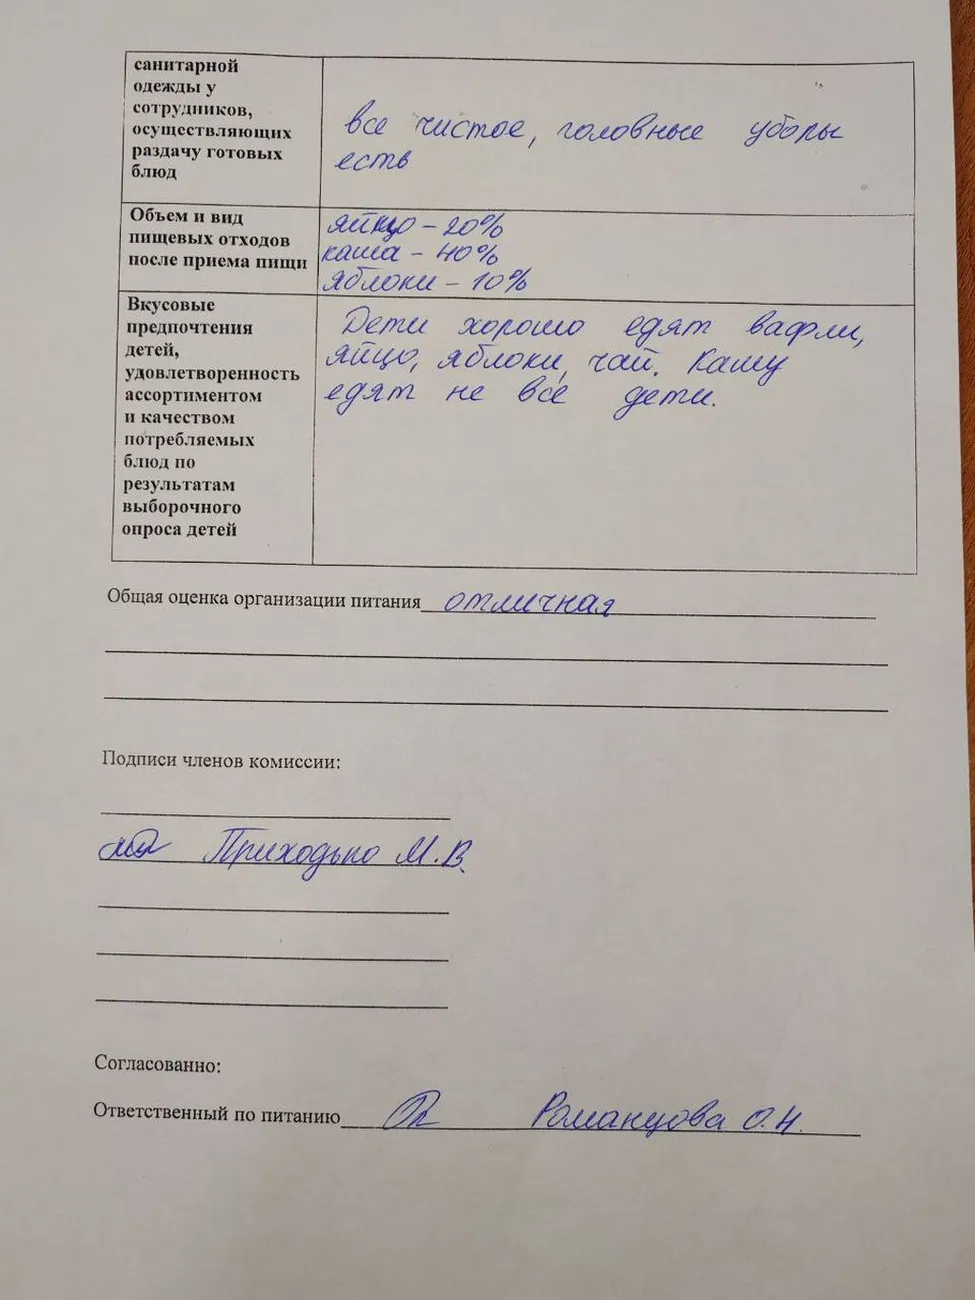 санитарной
одежды у
сотрудников,
осуществляющих
раздачу готовых
блюд
все чистое, головные уборы
есть
Объем и вид
пищевых отходов
после приема пищи
яйцо - 20%
каша - 40%
яблоки - 10%
Вкусовые
предпочтения
детей,
удовлетворенность
ассортиментом
и качеством
потребляемых
блюд по
результатам
выборочного
опроса детей
Дети хорошо едят вафли,
яйцо, яблоки, чай. Кашу
едят не все дети.
Общая оценка организации питания отличная
Подписи членов комиссии:
Приходько М.В.
Согласованно:
Ответственный по питанию Романцова О.Н.